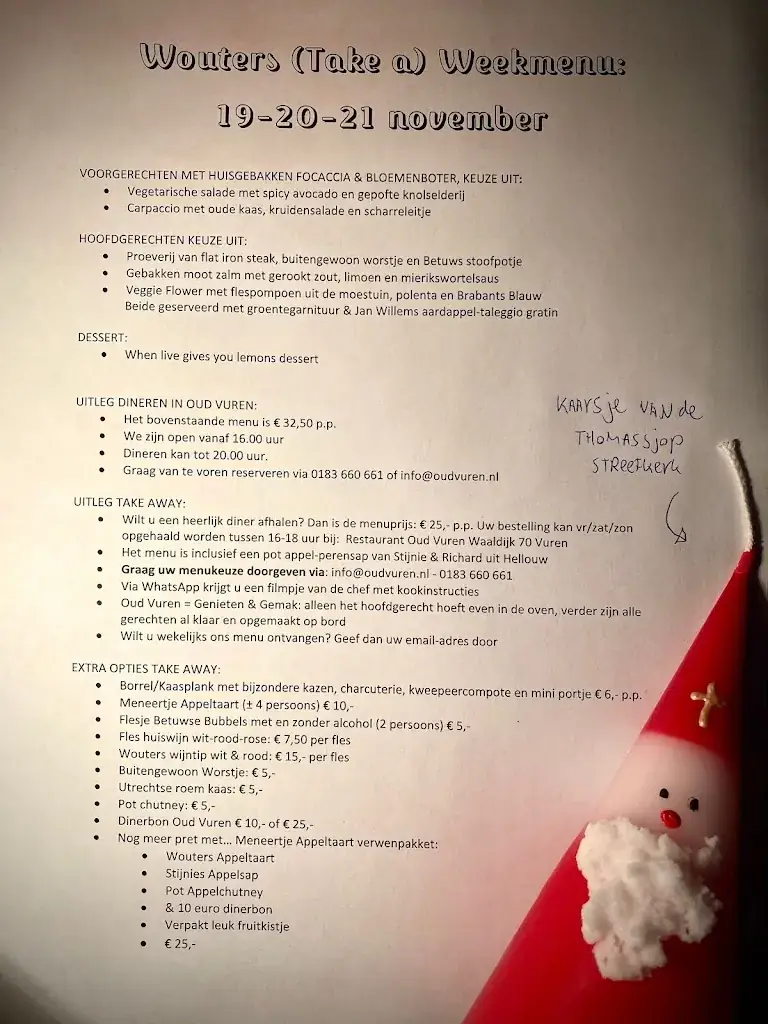 Wouters (Take a) Weekmenu:
19-20-21 november
VOORGERECHTEN MET HUISGEBAKKEN FOCACCIA & BLOEMENBOTER, KEUZE UIT:
• Vegetarische salade met spicy avocado en gepofte knolselderij
• Carpaccio met oude kaas, kruidensalade en scharreleitje
HOOFDGERECHTEN KEUZE UIT:
• Proeverij van flat iron steak, buitengewoon worstje en Betuws stoofpotje
• Gebakken moot zalm met gerookt zout, limoen en mierikswortelsaus
• Veggie Flower met flespompoen uit de moestuin, polenta en Brabants Blauw
Beide geserveerd met groentegarnituur & Jan Willems aardappel-taleggio gratin
DESSERT:
• When live gives you lemons dessert
UITLEG DINEREN IN OUD VUREN:
• Het bovenstaande menu is € 32,50 p.p.
• We zijn open vanaf 16.00 uur
• Dineren kan tot 20.00 uur.
• Graag van te voren reserveren via 0183 660 661 of info@oudvuren.nl
KAARSje VAN de
THOMASSJOP
STREEFKERK
UITLEG TAKE AWAY:
• Wilt u een heerlijk diner afhalen? Dan is de menuprijs: € 25,- p.p. Uw bestelling kan vr/zat/zon
opgehaald worden tussen 16-18 uur bij: Restaurant Oud Vuren Waaldijk 70 Vuren
• Het menu is inclusief een pot appel-perensap van Stijnie & Richard uit Hellouw
• Graag uw menukeuze doorgeven via: info@oudvuren.nl - 0183 660 661
• Via WhatsApp krijgt u een filmpje van de chef met kookinstructies
• Oud Vuren = Genieten & Gemak: alleen het hoofdgerecht hoeft even in de oven, verder zijn alle
gerechten al klaar en opgemaakt op bord
• Wilt u wekelijks ons menu ontvangen? Geef dan uw email-adres door
EXTRA OPTIES TAKE AWAY:
• Borrel/Kaasplank met bijzondere kazen, charcuterie, kweepeercompote en mini portje € 6,- p.p.
• Meneertje Appeltaart (± 4 persoons) € 10,-
• Flesje Betuwse Bubbels met en zonder alcohol (2 persoons) € 5,-
• Fles huiswijn wit-rood-rose: € 7,50 per fles
• Wouters wijntip wit & rood: € 15,- per fles
• Buitengewoon Worstje: € 5,-
• Utrechtse roem kaas: € 5,-
• Pot chutney: € 5,-
• Dinerbon Oud Vuren € 10,- of € 25,-
• Nog meer pret met... Meneertje Appeltaart verwenpakket:
• Wouters Appeltaart
• Stijnies Appelsap
• Pot Appelchutney
• & 10 euro dinerbon
• Verpakt leuk fruitkistje
• € 25,-